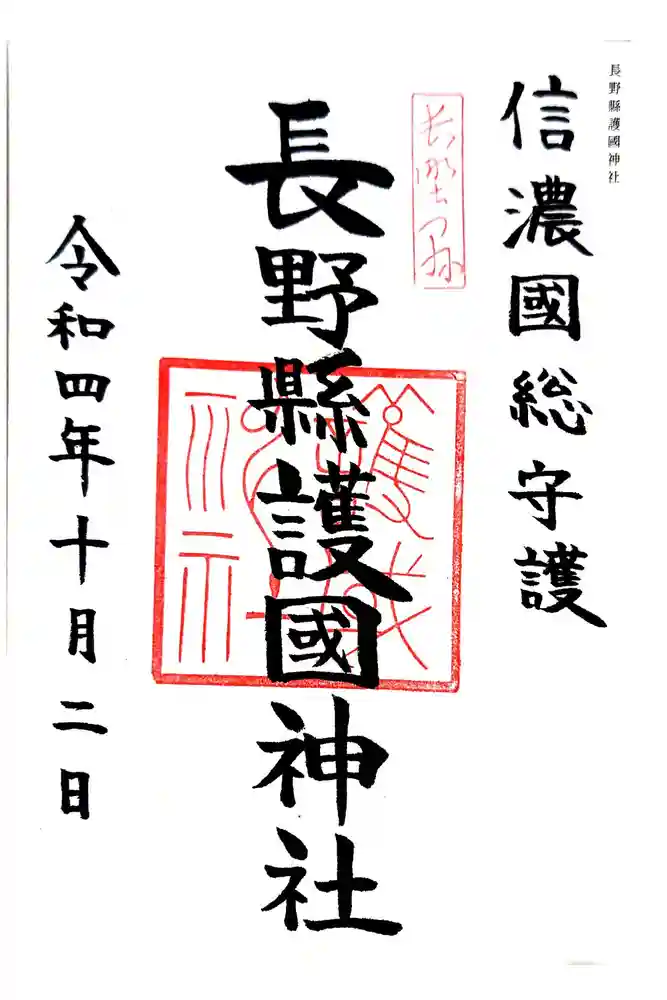 長野縣護國神社
信濃國総守護
長野县
長野縣護國神社
令和四年十月二日